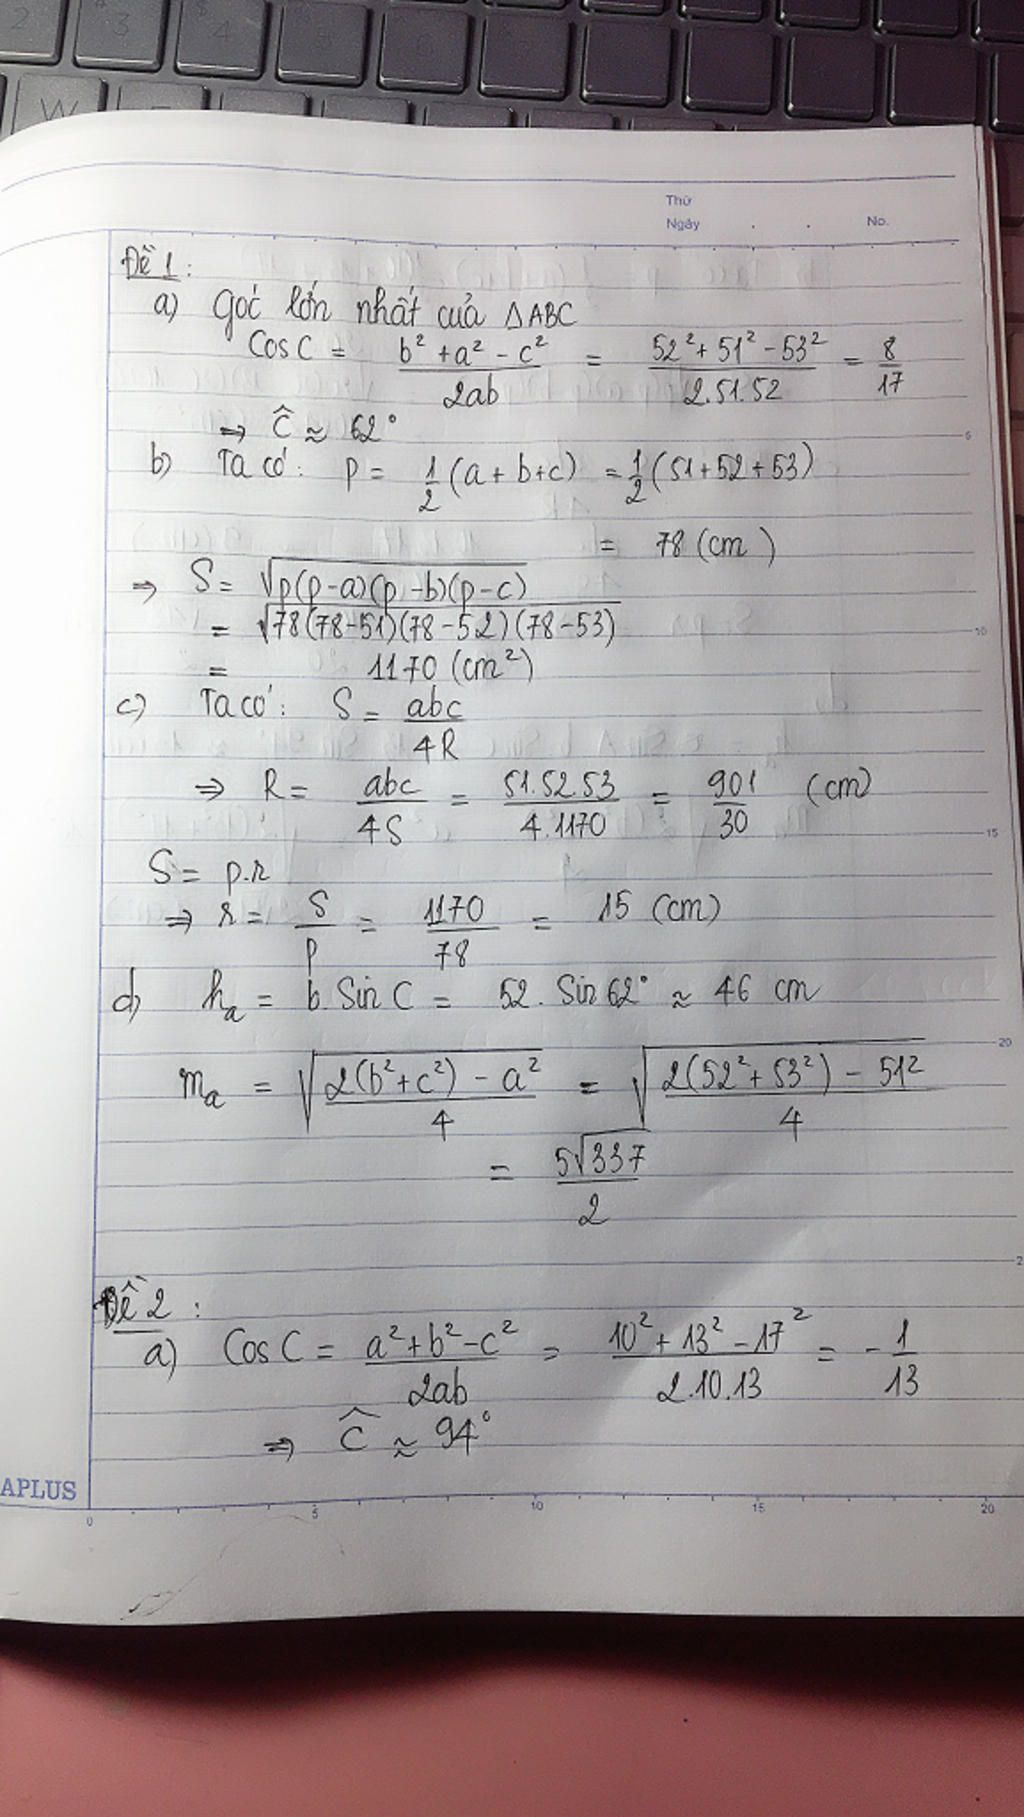 2 3 4 5 6 7
W
Thứ
Ngày . . No.
Đề 1:
a) Góc lớn nhất của ΔABC
Cos C = (b² + a² - c²)/(2ab) = (52² + 51² - 53²)/(2.51.52) = 8/17
⇒ Ĉ ≈ 62°
5
b) Ta có: P = 1/2 (a + b + c) = 1/2 (51 + 52 + 53)
= 78 (cm)
⇒ S = √(p(p-a)(p-b)(p-c))
= √(78(78-51)(78-52)(78-53))
10
= 1170 (cm²)
c) Ta có: S = abc/4R
⇒ R = abc/4S = 51.52.53/4.1170 = 901/30 (cm)
15
S = p.r
⇒ r = S/p = 1170/78 = 15 (cm)
d) hₐ = b. Sin C = 52. Sin 62° ≈ 46 cm
20
mₐ = √((2(b² + c²) - a²)/4) = √((2(52² + 53²) - 51²)/4)
= 5√337/2
2
Đề 2:
a) Cos C = (a² + b² - c²)/(2ab) = (10² + 13² - 17²)/(2.10.13) = -1/13
⇒ Ĉ ≈ 94°
APLUS
0 5 10 15 20